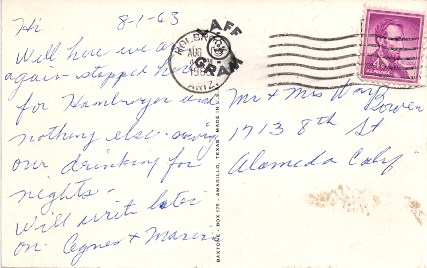 Hi 8-1-63
Well here we are
again - stopped here
for Hamburger and
nothing else - saving
our drinking for
nights -
Will write later
on. Agnes &
LAFF
GRAM
HOLBROOK
AUG
ARIZ.
4¢
U.S. POSTAGE
Mr & Mrs
Bowen
1713 8th St
Alameda Calif
BAXTONE - BOX 175 - AMARILLO, TEXAS MADE IN U.S.A.